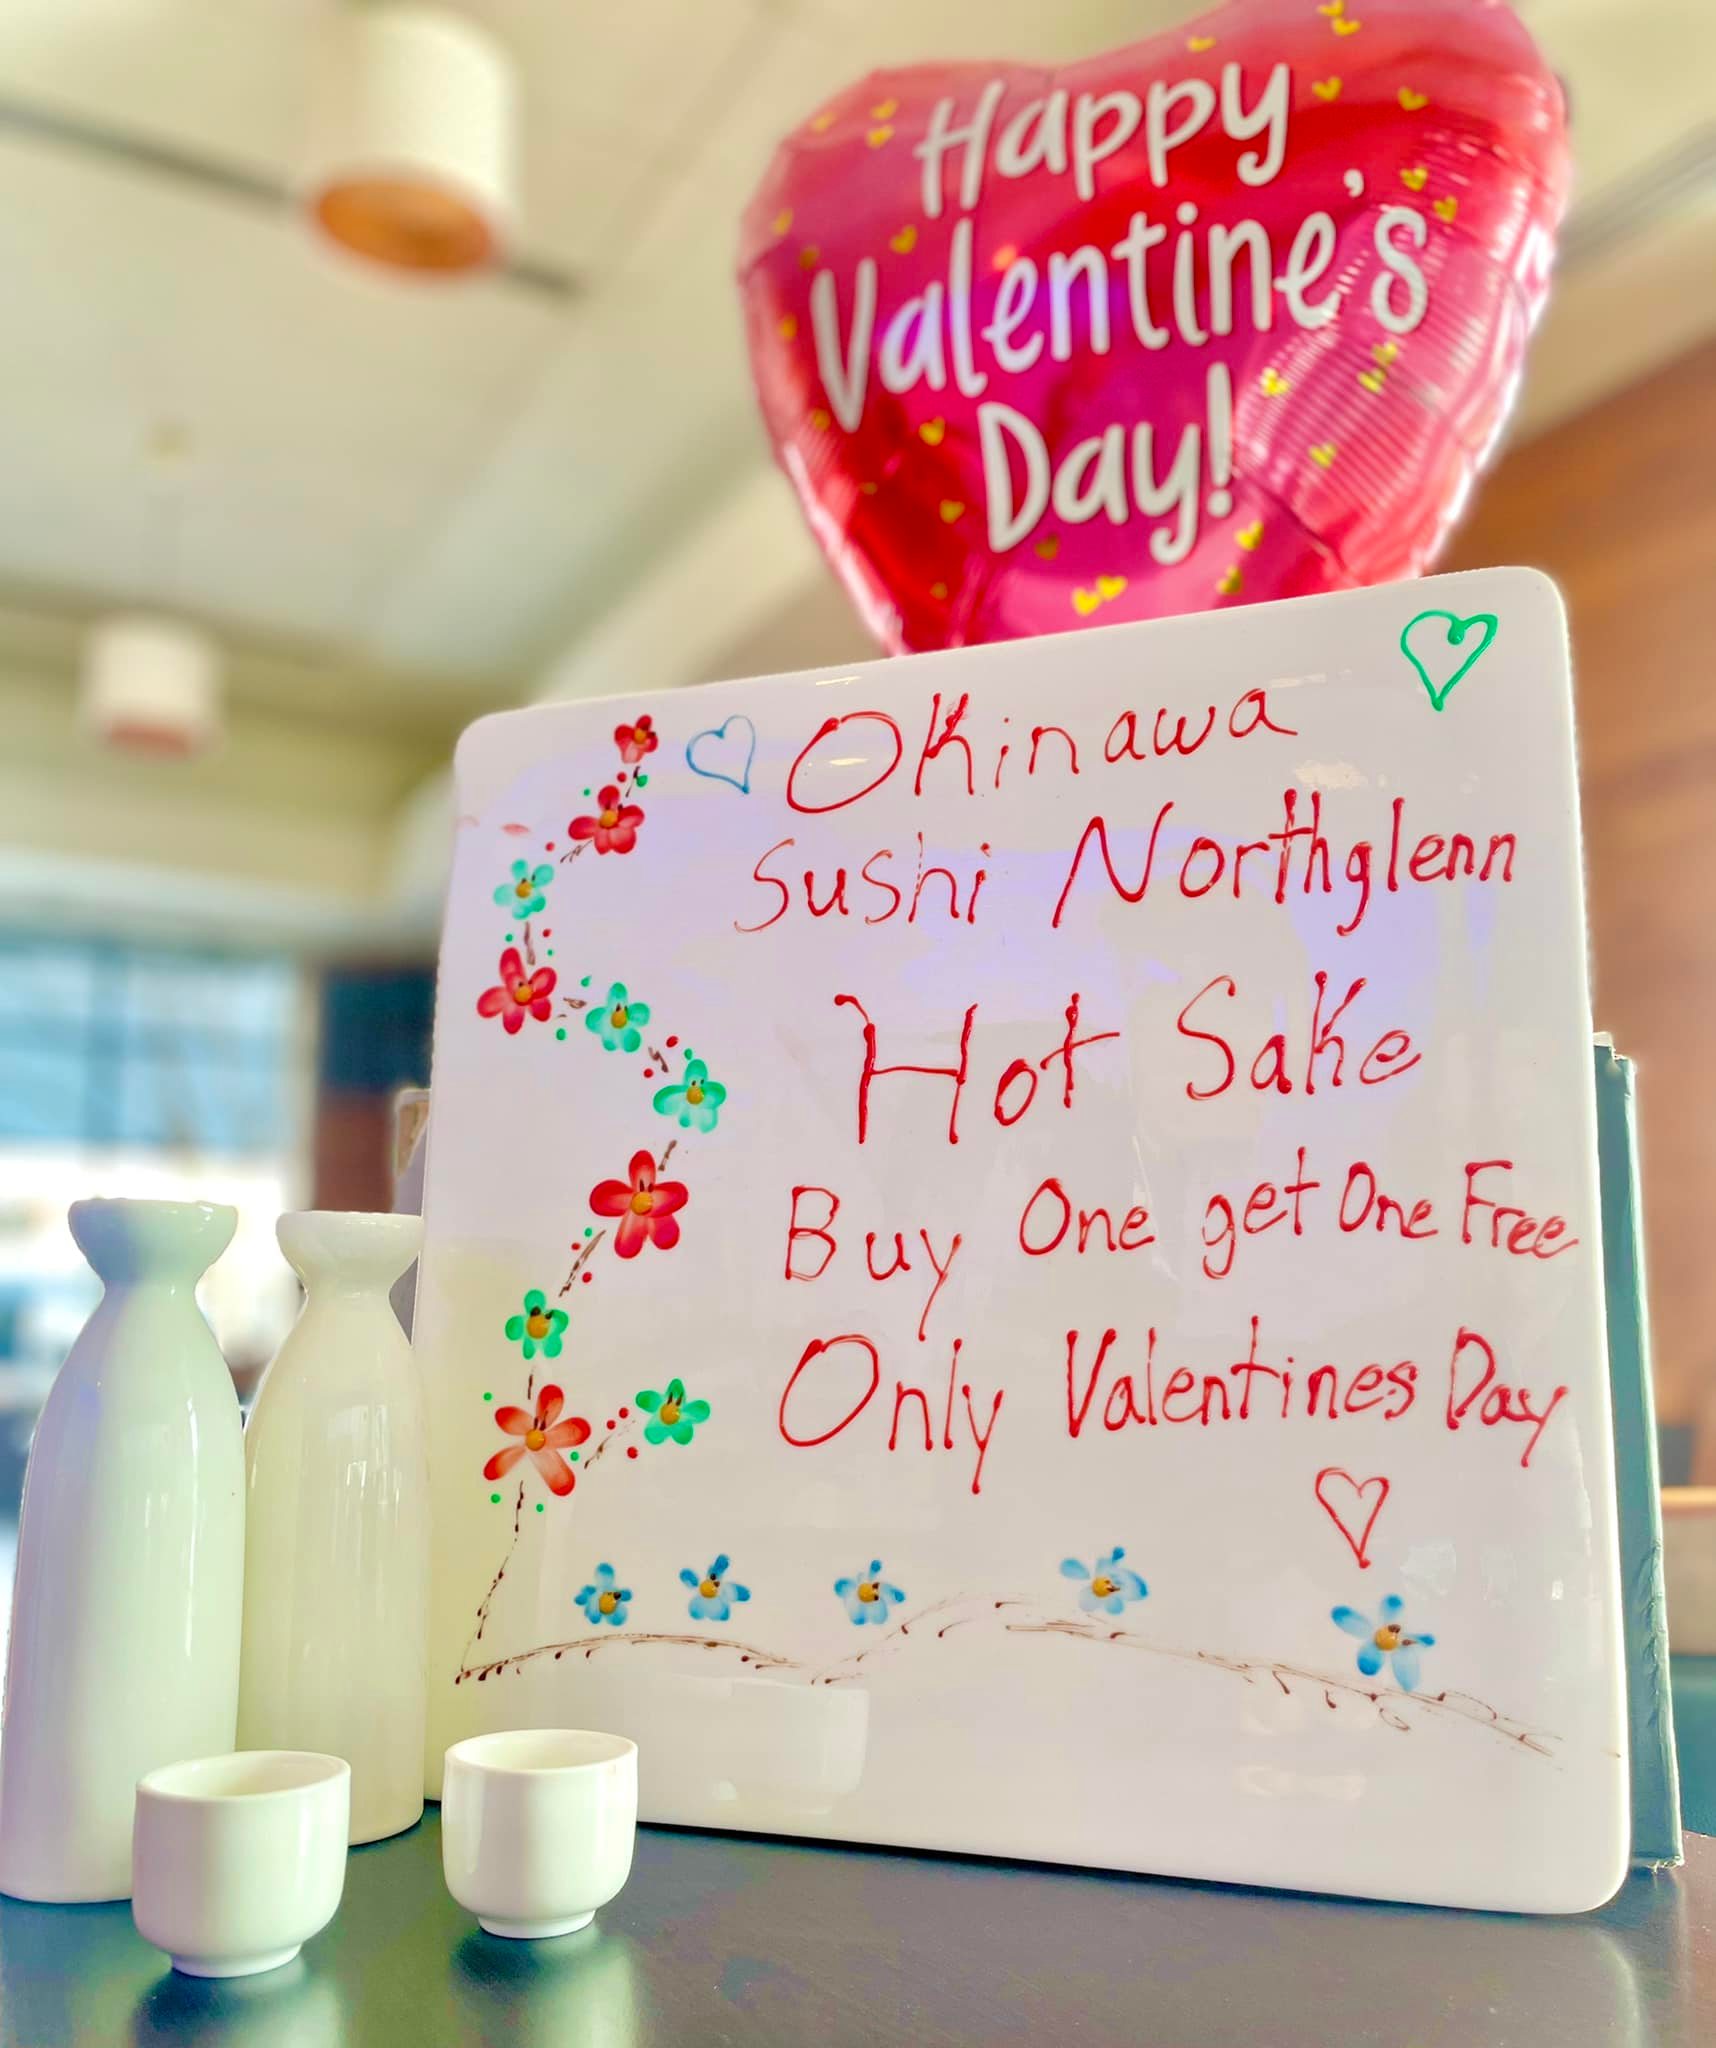 Happy
Valentine's
Day!
Okinawa
Sushi Northglenn
Hot Sake
Buy One get One Free
Only Valentines Day